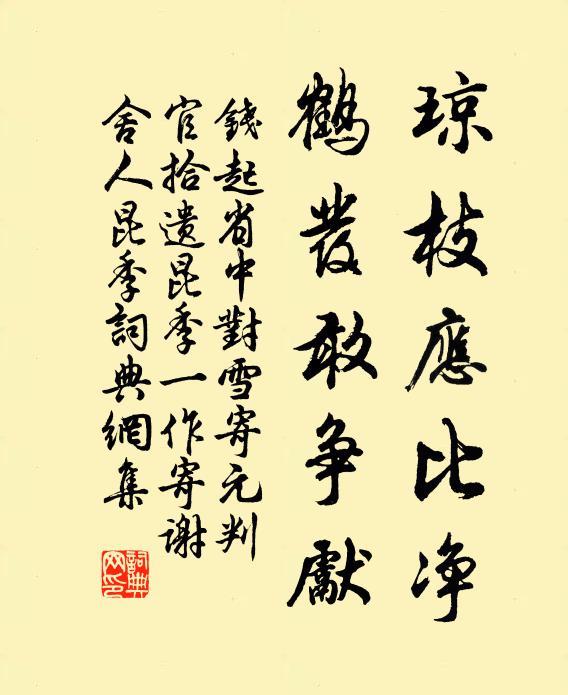 琼枝應比净
鶴發敢争獻
錢起省中對雪寄元判
官拾遺昆季一作寄謝
舍人昆季詞典網集
詞典网印